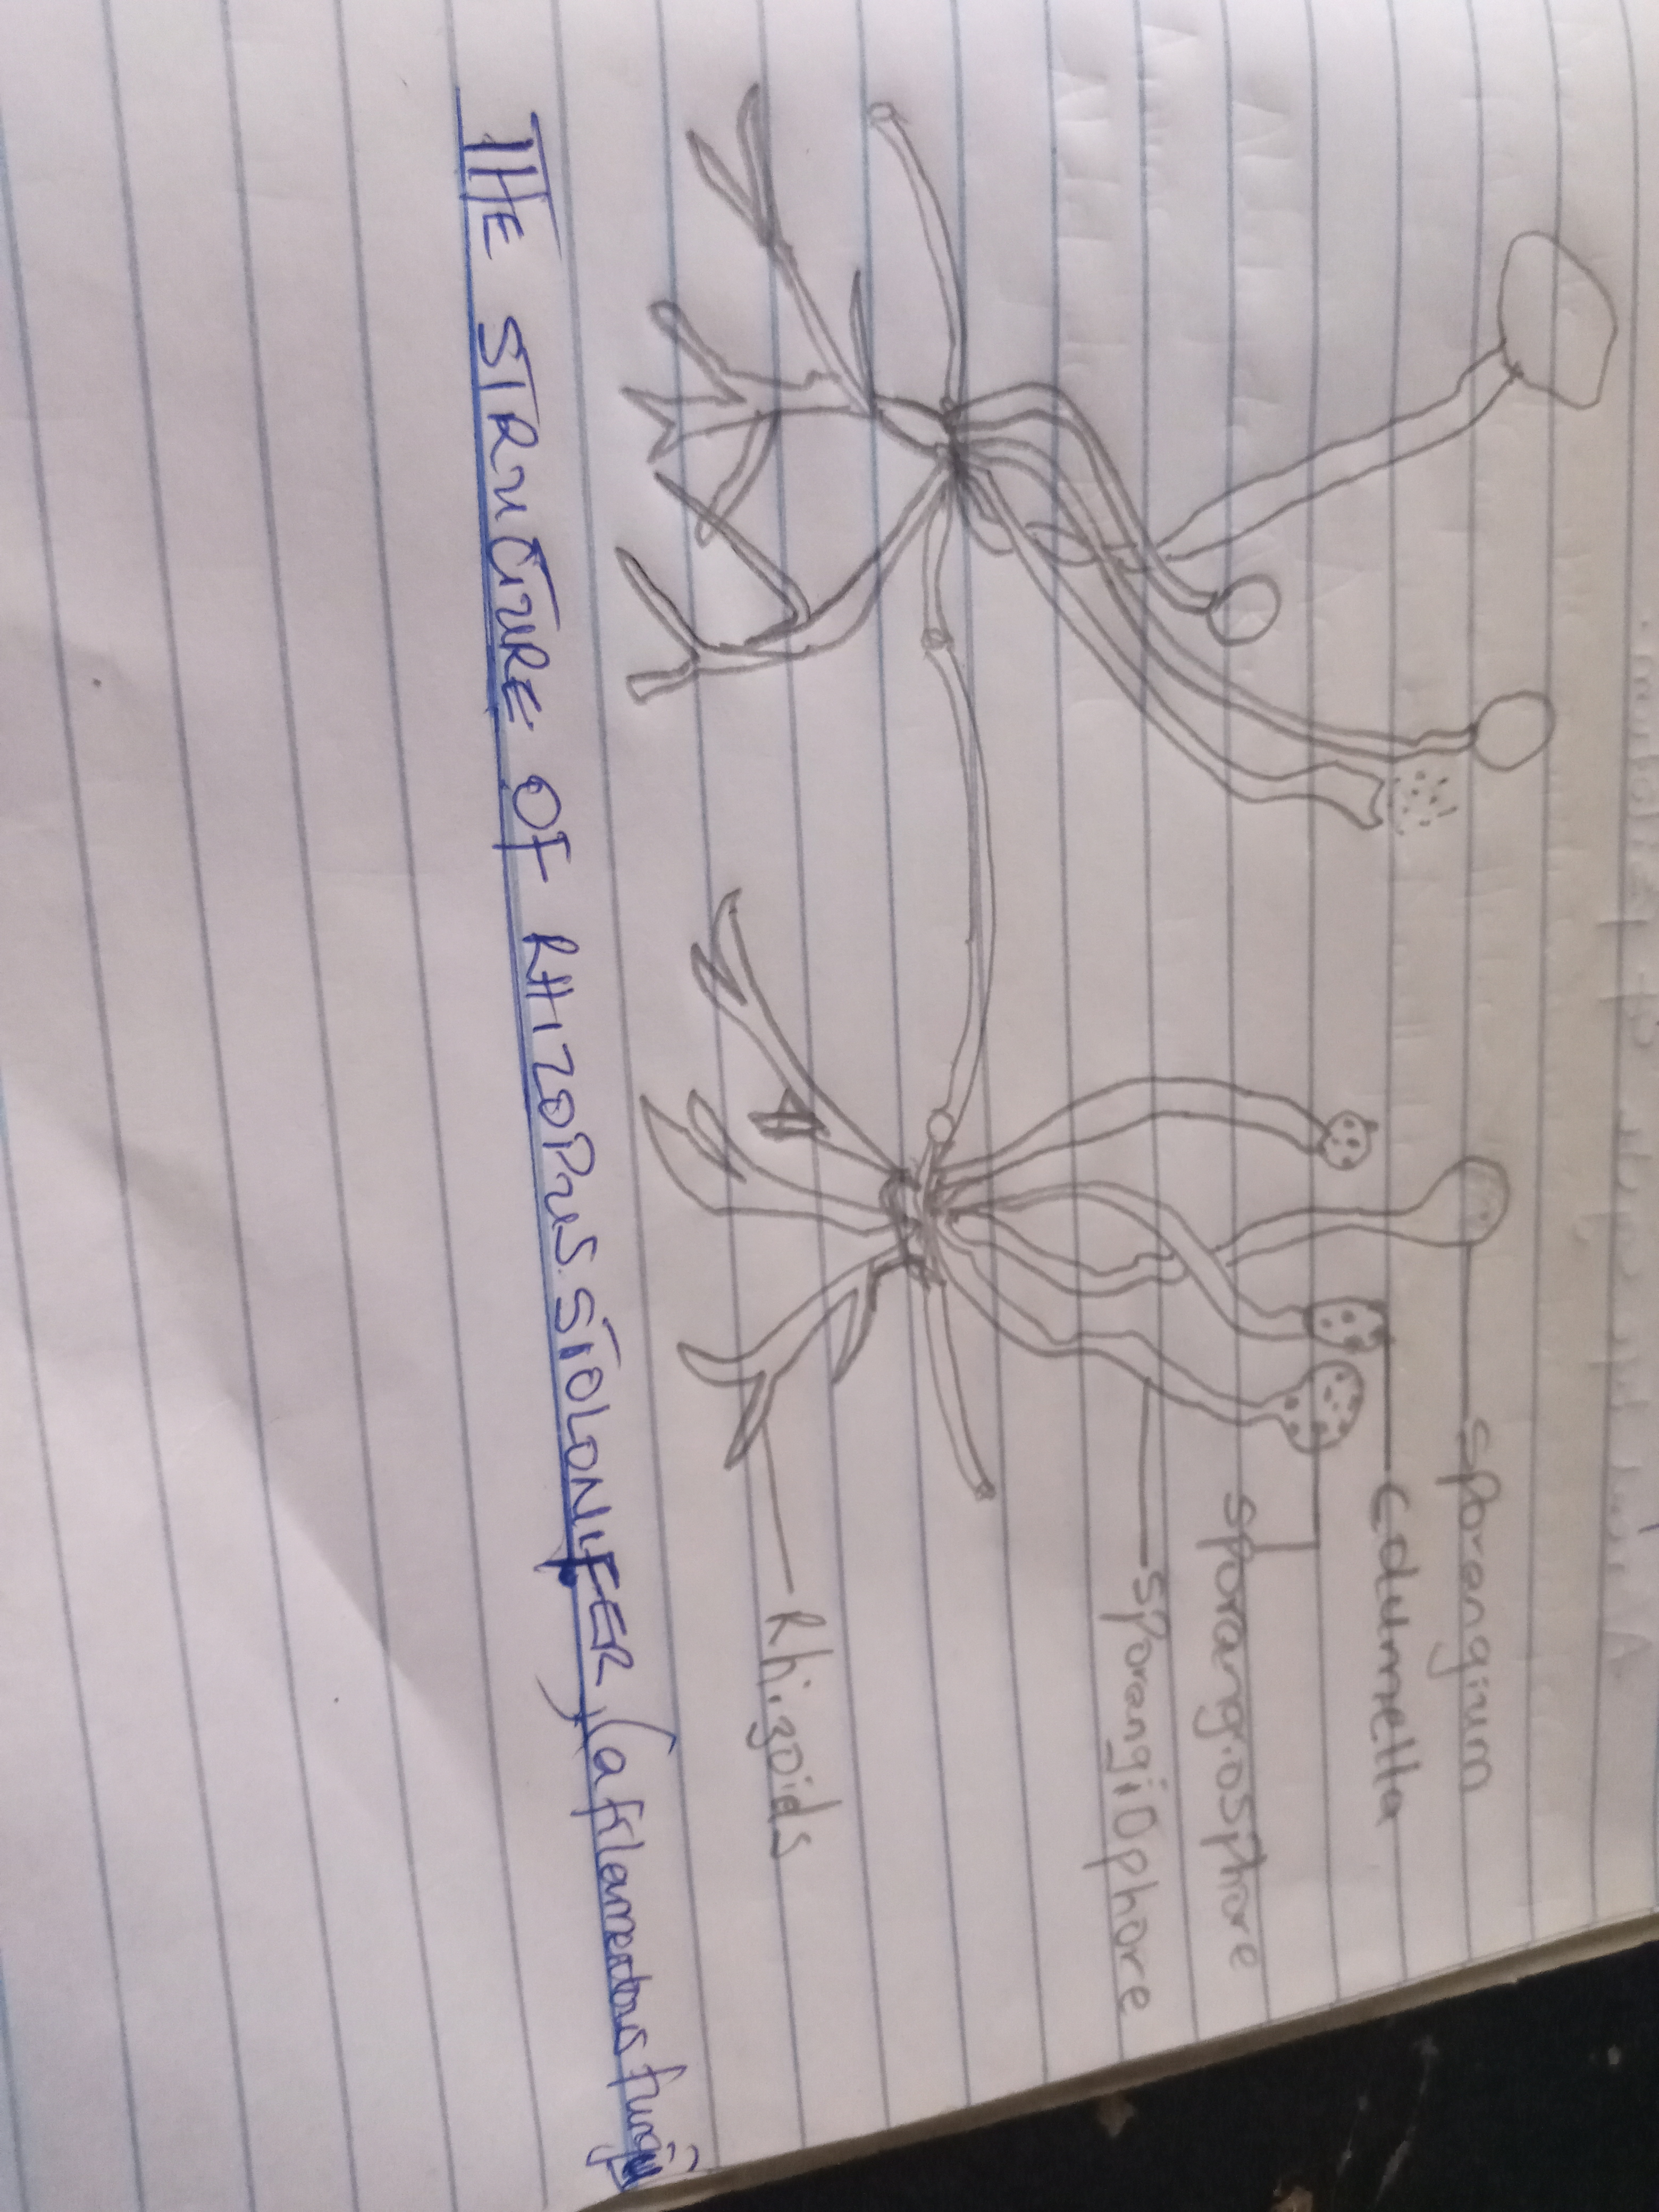 Sporangium
Columella
Sporangiosphore
Sporangiophore
Rhizoids
THE STRUCTURE OF RHIZOPUS. STOLONIFER, (a filamentous fungi)